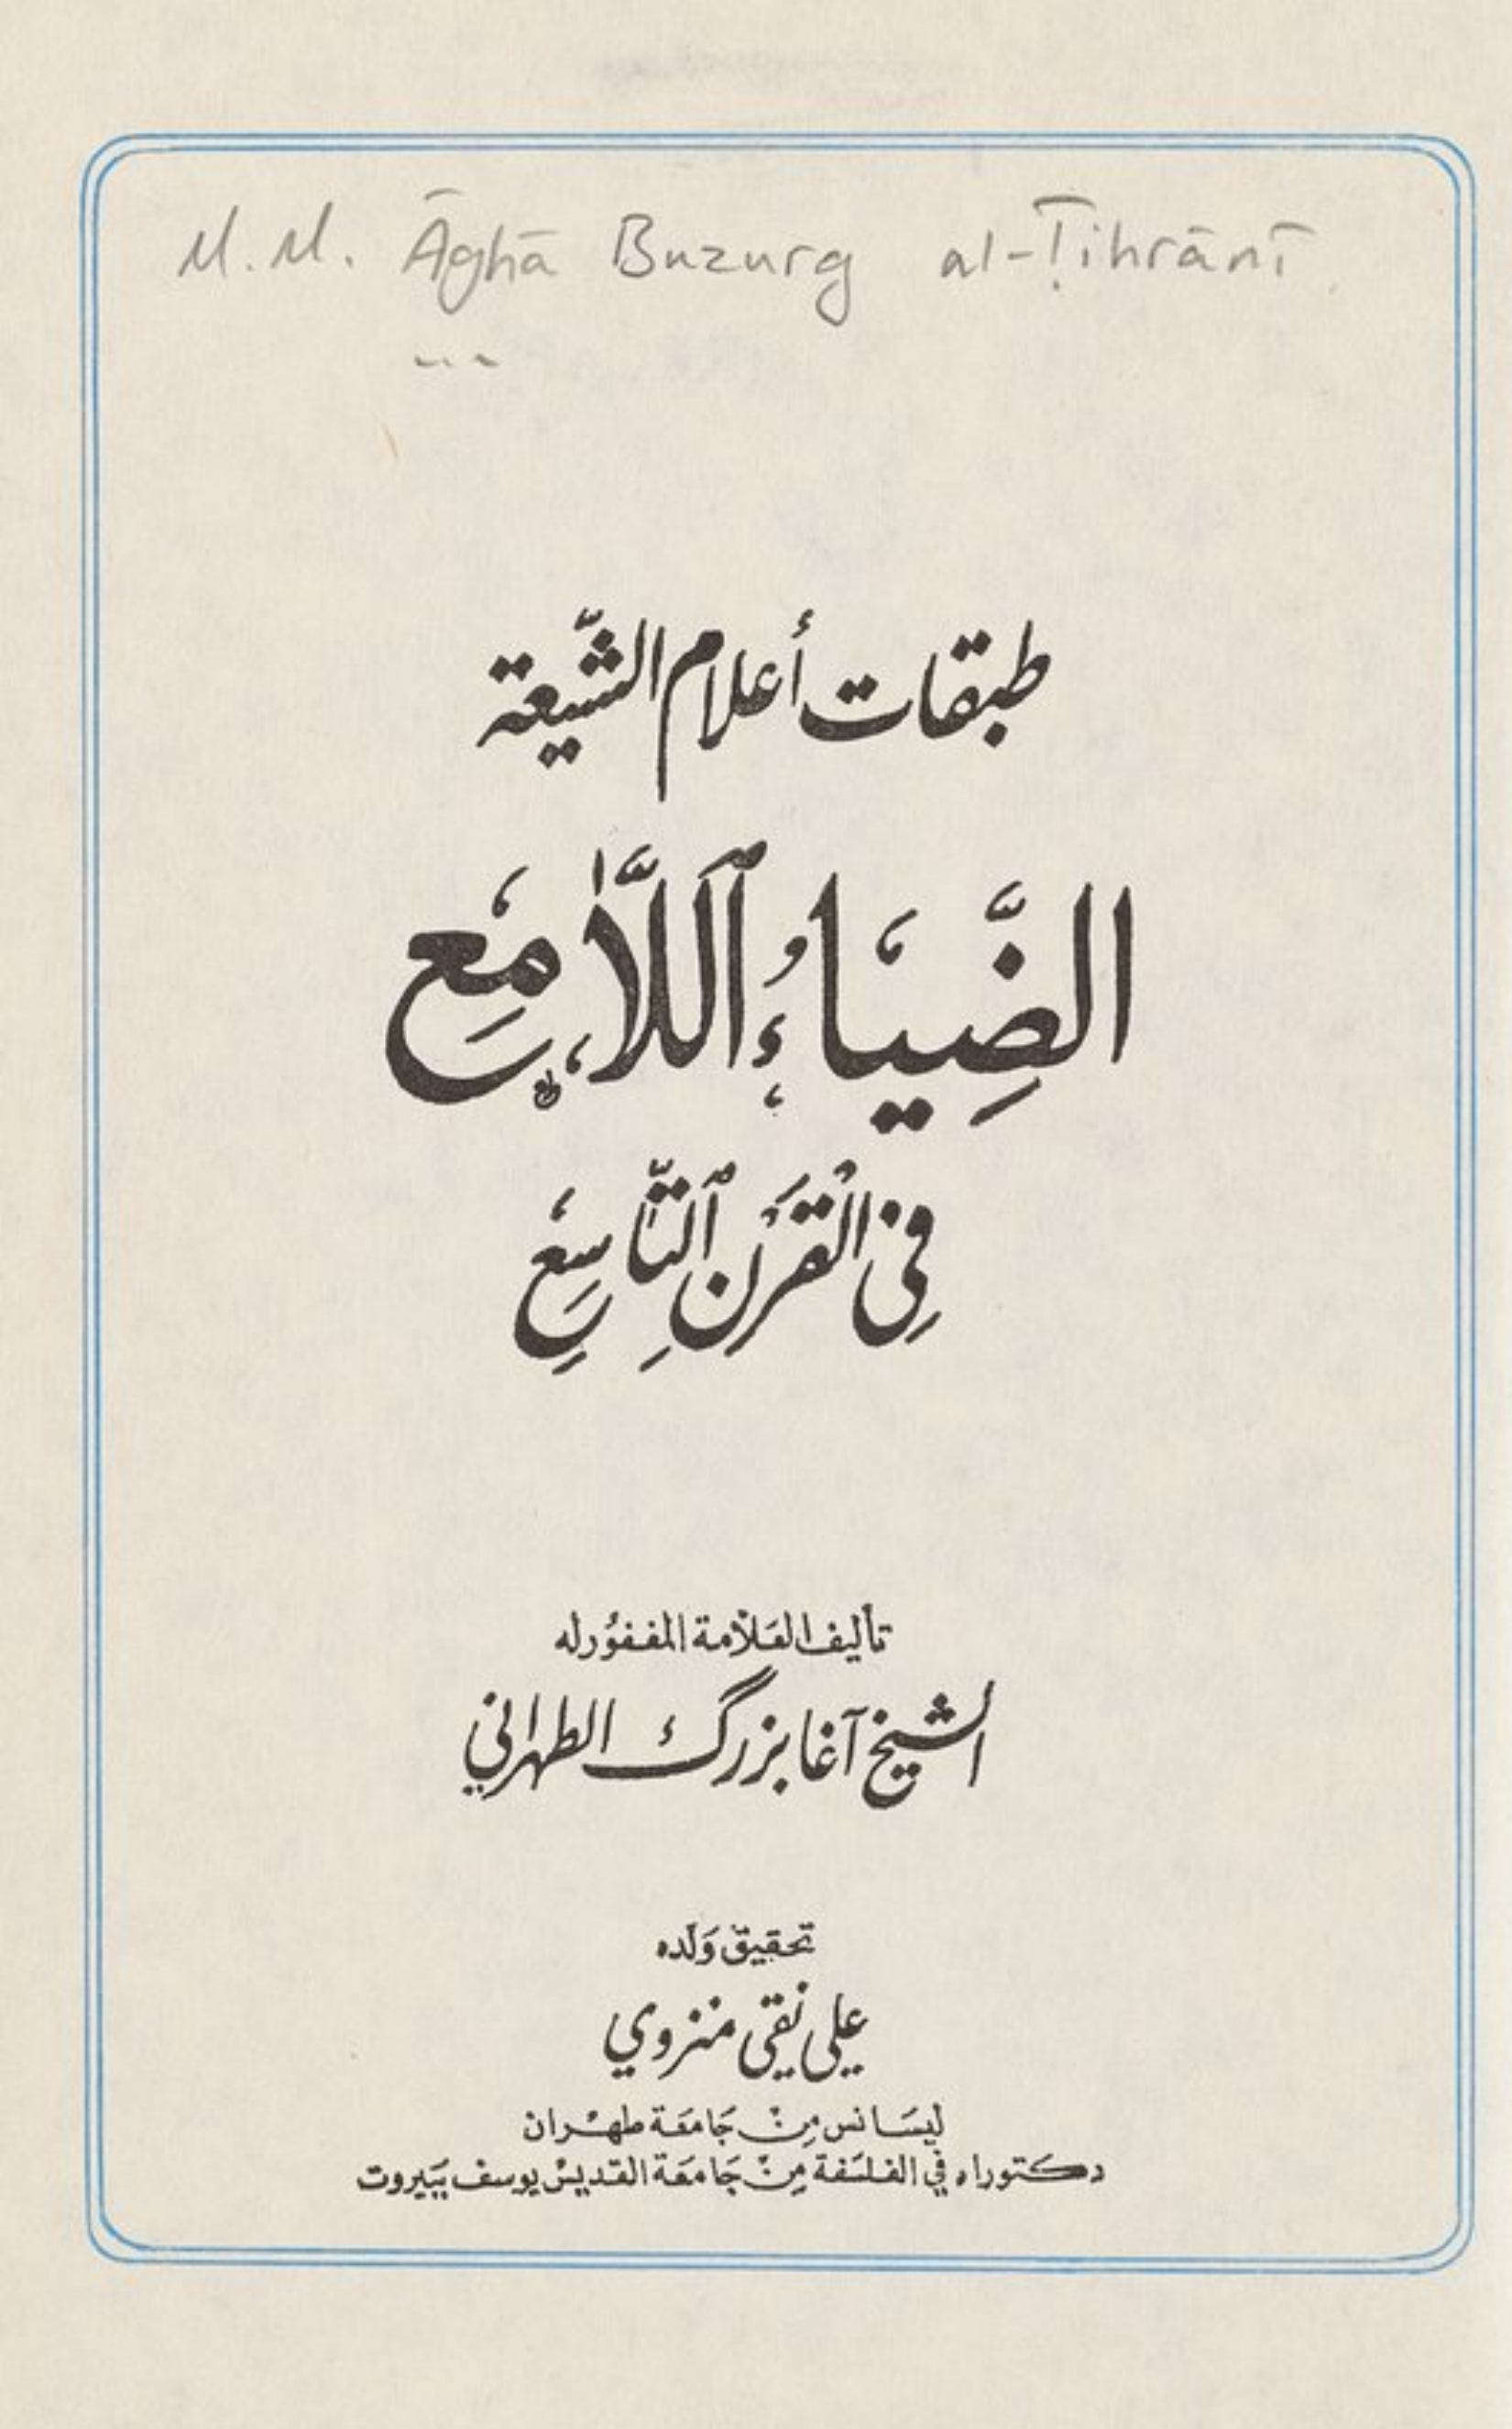 M. M. Āghā Buzurg al-Ṭihrānī
طبقات أعلام الشّيعة
الضِّيَاءُ ٱللَّامِع
فِي الْقَرْنِ ٱلتَّاسِعِ
تأليف العَلّامة المغفُور له
الشيخ آغا بزرگ الطهراني
تحقيق وَلَده
علي نقي منزوي
ليسَانس مِنْ جَامعَة طهْران
دكتوراه في الفلسَفة مِنْ جَامعَة القديسْ يوسف بَيروت